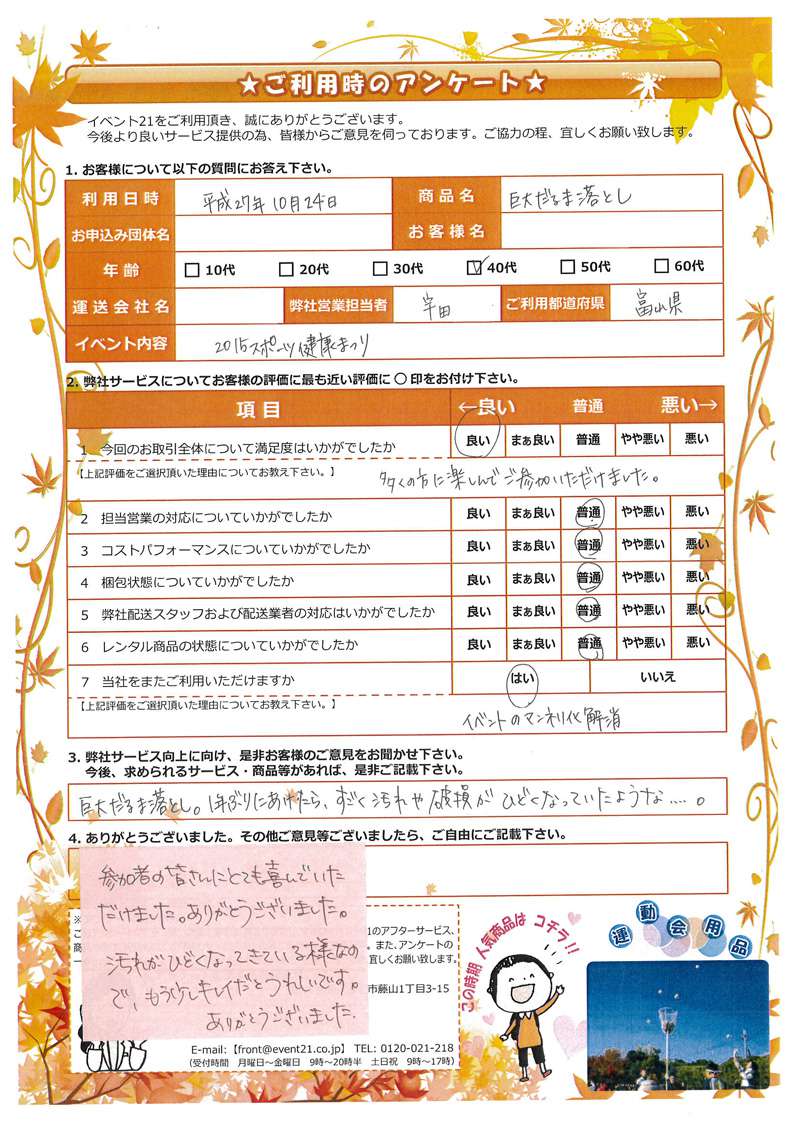 ★ご利用時のアンケート★
イベント21をご利用頂き、誠にありがとうございます。
今後より良いサービス提供の為、皆様からご意見を伺っております。ご協力の程、宜しくお願い致します。
1. お客様について以下の質問にお答え下さい。
利用日時 平成27年10月24日 商品名 巨大だるま落とし
お申込み団体名 お客様名
年齢 □10代 □20代 □30代 ☑40代 □50代 □60代
運送会社名 弊社営業担当者 宇田 ご利用都道府県 富山県
イベント内容 2015スポーツ健康まつり
2. 弊社サービスについてお客様の評価に最も近い評価に○印をお付け下さい。
項目 ←良い 普通 悪い→
1 今回のお取引全体について満足度はいかがでしたか 良い まぁ良い 普通 やや悪い 悪い
【上記評価をご選択頂いた理由についてお教え下さい。】
多くの方に楽しんでご参加いただけました。
2 担当営業の対応についていかがでしたか 良い まぁ良い 普通 やや悪い 悪い
3 コストパフォーマンスについていかがでしたか 良い まぁ良い 普通 やや悪い 悪い
4 梱包状態についていかがでしたか 良い まぁ良い 普通 やや悪い 悪い
5 弊社配送スタッフおよび配送業者の対応はいかがでしたか 良い まぁ良い 普通 やや悪い 悪い
6 レンタル商品の状態についていかがでしたか 良い まぁ良い 普通 やや悪い 悪い
7 当社をまたご利用いただけますか はい いいえ
【上記評価をご選択頂いた理由についてお教え下さい。】
イベントのマンネリ化解消
3. 弊社サービス向上に向け、是非お客様のご意見をお聞かせ下さい。
今後、求められるサービス・商品等があれば、是非ご記載下さい。
巨大だるま落とし。1年ぶりにあけたら、すごく汚れや破損がひどくなっていたような....。
4. ありがとうございました。その他ご意見等ございましたら、ご自由にご記載下さい。
参加者の皆さんにとても喜んでいた
だけました。ありがとうございました。
汚れがひどくなってきている様なの
で、もう少しキレイだとうれしいです。
ありがとうございました。
1のアフターサービス、
また、アンケートの
宜しくお願い致します。
市藤山1丁目3-15
E-mail:【front@event21.co.jp】 TEL: 0120-021-218
（受付時間 月曜日～金曜日 9時～20時半 土日祝 9時～17時）
この時期 人気商品は コチラ!!
運動会用品